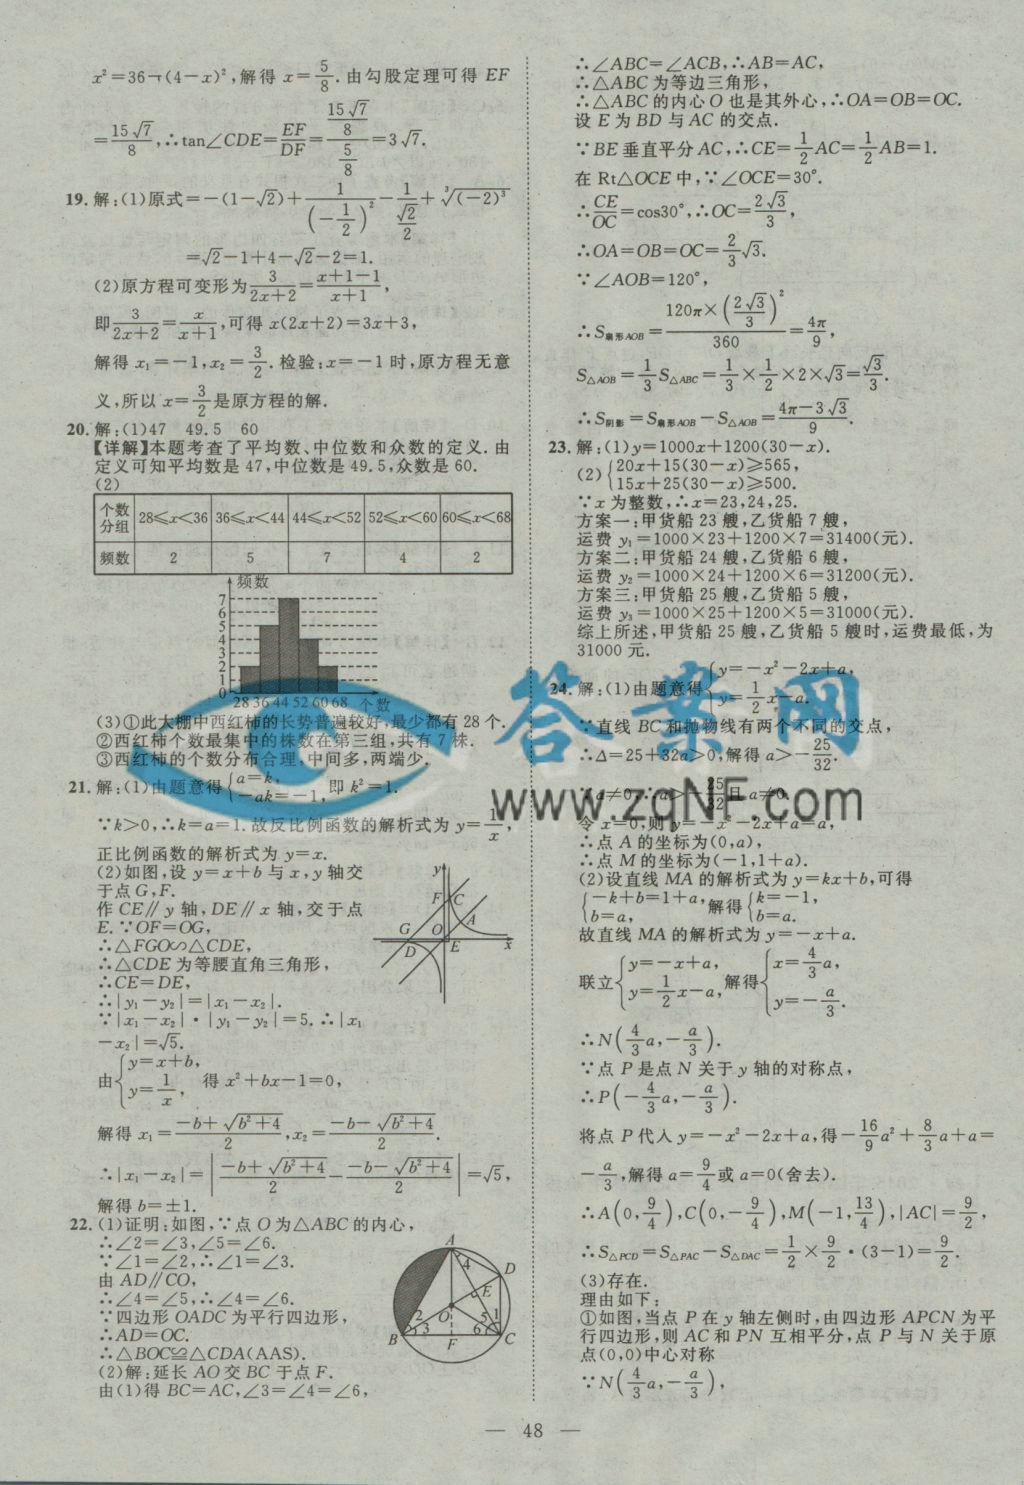 x²=36-(4-x)²,解得 x=5/8.由勾股定理可得 EF
=15√7/8,∴tan∠CDE=EF/DF=(15√7/8)/(5/8)=3√7.
19.解:(1)原式=-(1-√2)+1/(-1/2)²-1/(√2/2)+³√(-2)³
=√2-1+4-√2-2=1.
(2)原方程可变形为3/(2x+2)=(x+1-1)/(x+1),
即3/(2x+2)=x/(x+1),可得 x(2x+2)=3x+3,
解得 x₁=-1,x₂=3/2.检验:x=-1时,原方程无意
义,所以 x=3/2是原方程的解.
20.解:(1)47 49.5 60
【详解】本题考查了平均数、中位数和众数的定义.由
定义可知平均数是 47,中位数是49.5,众数是 60.
(2)
个数分组 28≤x<36 36≤x<44 44≤x<52 52≤x<60 60≤x<68
频数 2 5 7 4 2
频数
7
6
5
4
3
2
1
0
28 36 44 52 60 68 个数
(3)①此大棚中西红柿的长势普遍较好,最少都有 28 个.
②西红柿个数最集中的株数在第三组,共有 7 株.
③西红柿的个数分布合理,中间多,两端少.
21.解:(1)由题意得{a=k, -ak=-1,即 k²=1.
∵k>0,∴k=a=1.故反比例函数的解析式为 y=1/x,
正比例函数的解析式为 y=x.
(2)如图,设 y=x+b 与 x,y 轴交
于点 G,F.
作 CE∥y 轴,DE∥x 轴,交于点
E.∵OF=OG,
∴△FGO∽△CDE,
∴△CDE 为等腰直角三角形,
∴CE=DE,
∴|y₁-y₂|=|x₁-x₂|.
∵|x₁-x₂|·|y₁-y₂|=5.∴|x₁
-x₂|=√5.
y
F C
G O A
D E x
由{y=x+b, y=1/x, 得 x²+bx-1=0,
解得 x₁=(-b+√(b²+4))/2,x₂=(-b-√(b²+4))/2.
∴|x₁-x₂|=|(-b+√(b²+4))/2-(-b-√(b²+4))/2|=√5,
解得 b=±1.
22.(1)证明:如图,∵点 O 为△ABC 的内心,
∴∠2=∠3,∠5=∠6.
∵∠1=∠2,∴∠1=∠3.
由 AD∥CO,
∴∠4=∠5,∴∠4=∠6.
∵四边形 OADC 为平行四边形,
∴AD=OC.
∴△BOC≌△CDA(AAS).
(2)解:延长 AO 交 BC 于点 F.
由(1)得 BC=AC,∠3=∠4=∠6,
A
4 D
E
O
2 5 1
B 3 6 C
F
∴∠ABC=∠ACB,∴AB=AC,
∴△ABC 为等边三角形,
∴△ABC 的内心 O 也是其外心,∴OA=OB=OC.
设 E 为 BD 与 AC 的交点.
∵BE 垂直平分 AC,∴CE=1/2AC=1/2AB=1.
在 Rt△OCE 中,∵∠OCE=30°.
∴CE/OC=cos30°,∴OC=2√3/3,
∴OA=OB=OC=2/3√3.
∵∠AOB=120°,
∴S扇形AOB=120π×(2√3/3)²/360=4π/9,
S△AOB=1/3S△ABC=1/3×1/2×2×√3=√3/3.
∴S阴影=S扇形AOB-S△AOB=(4π-3√3)/9.
23.解:(1)y=1000x+1200(30-x).
(2){20x+15(30-x)≥565, 15x+25(30-x)≥500.
∵x 为整数,∴x=23,24,25.
方案一:甲货船 23 艘,乙货船 7 艘,
运费 y₁=1000×23+1200×7=31400(元).
方案二:甲货船 24 艘,乙货船 6 艘,
运费 y₂=1000×24+1200×6=31200(元).
方案三:甲货船 25 艘,乙货船 5 艘,
运费 y₃=1000×25+1200×5=31000(元).
综上所述,甲货船 25 艘,乙货船 5 艘时,运费最低,为
31000 元.
24.解:(1)由题意得{y=-x²-2x+a, y=1/2x-a.
∵直线 BC 和抛物线有两个不同的交点,
∴Δ=25+32a>0,解得 a>-25/32.
∵a≠0,∴a>-25/32且 a≠0.
令 x=0,则 y=-x²-2x+a=a,
∴点 A 的坐标为(0,a),
∴点 M 的坐标为(-1,1+a).
(2)设直线 MA 的解析式为 y=kx+b,可得
{-k+b=1+a, b=a,解得{k=-1, b=a.
故直线 MA 的解析式为 y=-x+a.
联立{y=-x+a, y=1/2x-a,解得{x=4/3a, y=-a/3.
∴N(4/3a,-a/3).
∵点 P 是点 N 关于 y 轴的对称点,
∴P(-4/3a,-a/3).
将点 P 代入 y=-x²-2x+a,得-16/9a²+8/3a+a=
-a/3,解得 a=9/4或 a=0(舍去).
∴A(0,9/4),C(0,-9/4),M(-1,13/4),|AC|=9/2,
∴S△PCD=S△PAC-S△DAC=1/2×9/2·(3-1)=9/2.
(3)存在.
理由如下:
①如图,当点 P 在 y 轴左侧时,由四边形 APCN 为平
行四边形,则 AC 和 PN 互相平分,点 P 与 N 关于原
点(0,0)中心对称
∵N(4/3a,-a/3),
答案网
www.zqNF.com
— 48 —